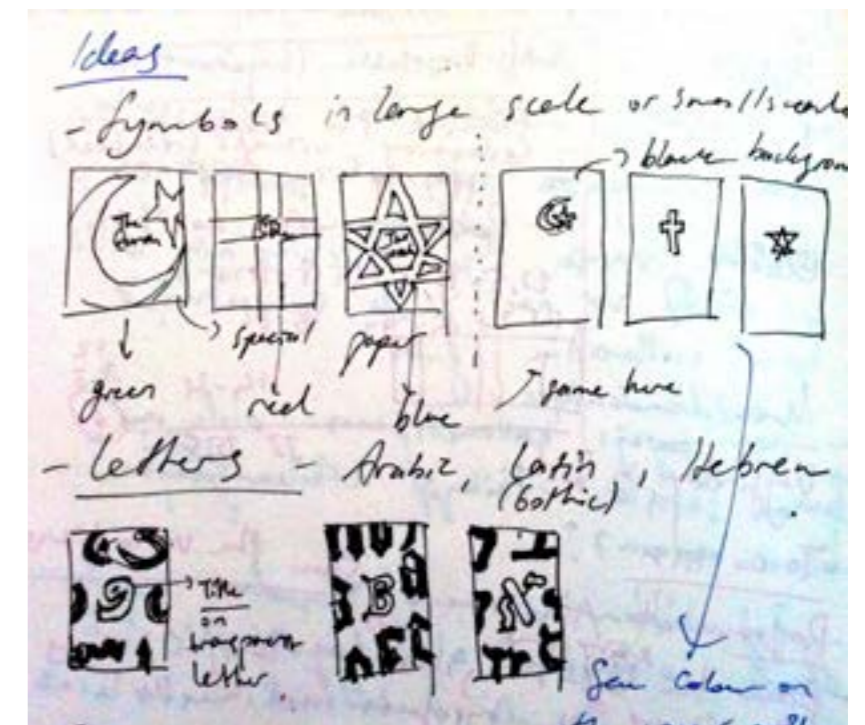 Ideas
- Symbols in large scale or small scale
black background
The Quran
special paper
green
red
blue
same here
- Letters - Arabic, Latin, Hebrew
(Gothic)
B
Title
on
transparent
letter
Same Colour on